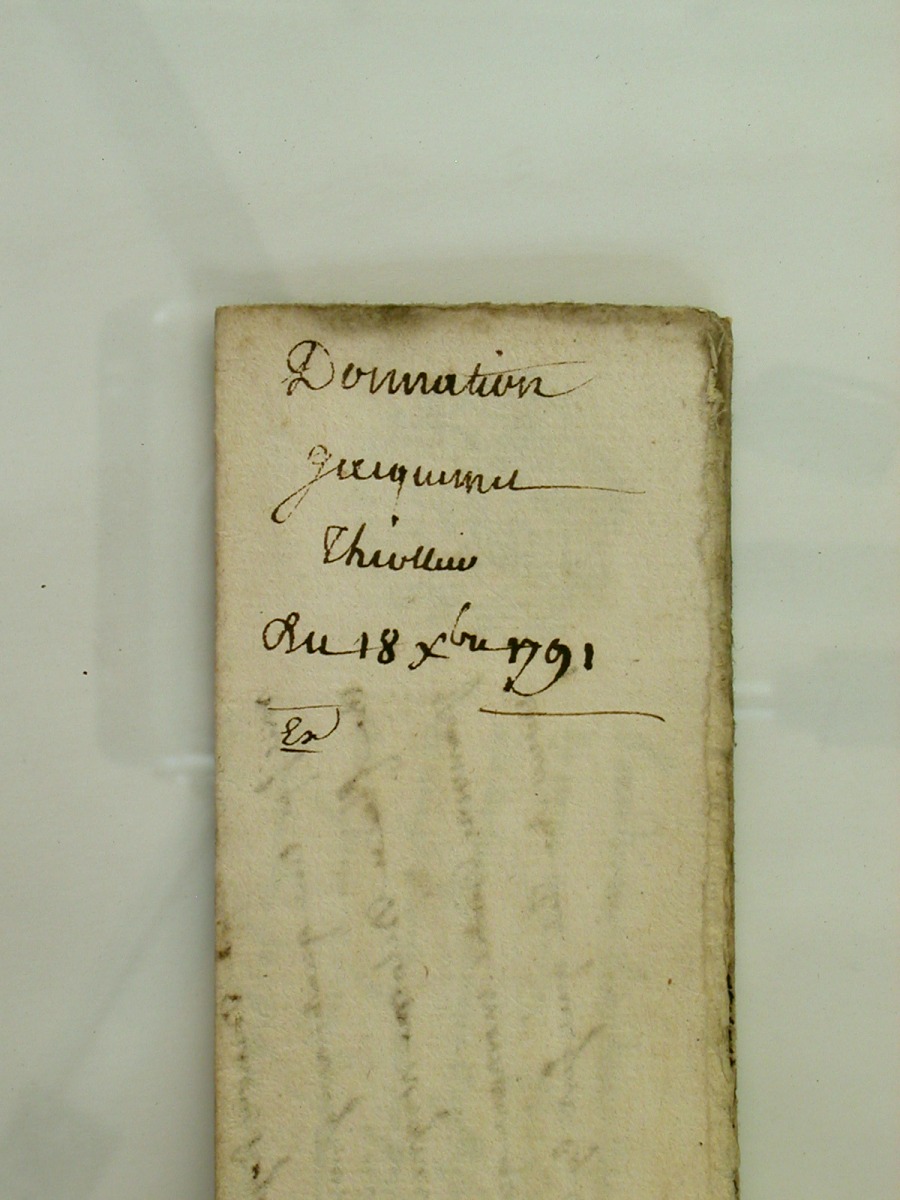 Donnation
Jacquemet
Thiollier
Du 18 Xbre 1791
Ex